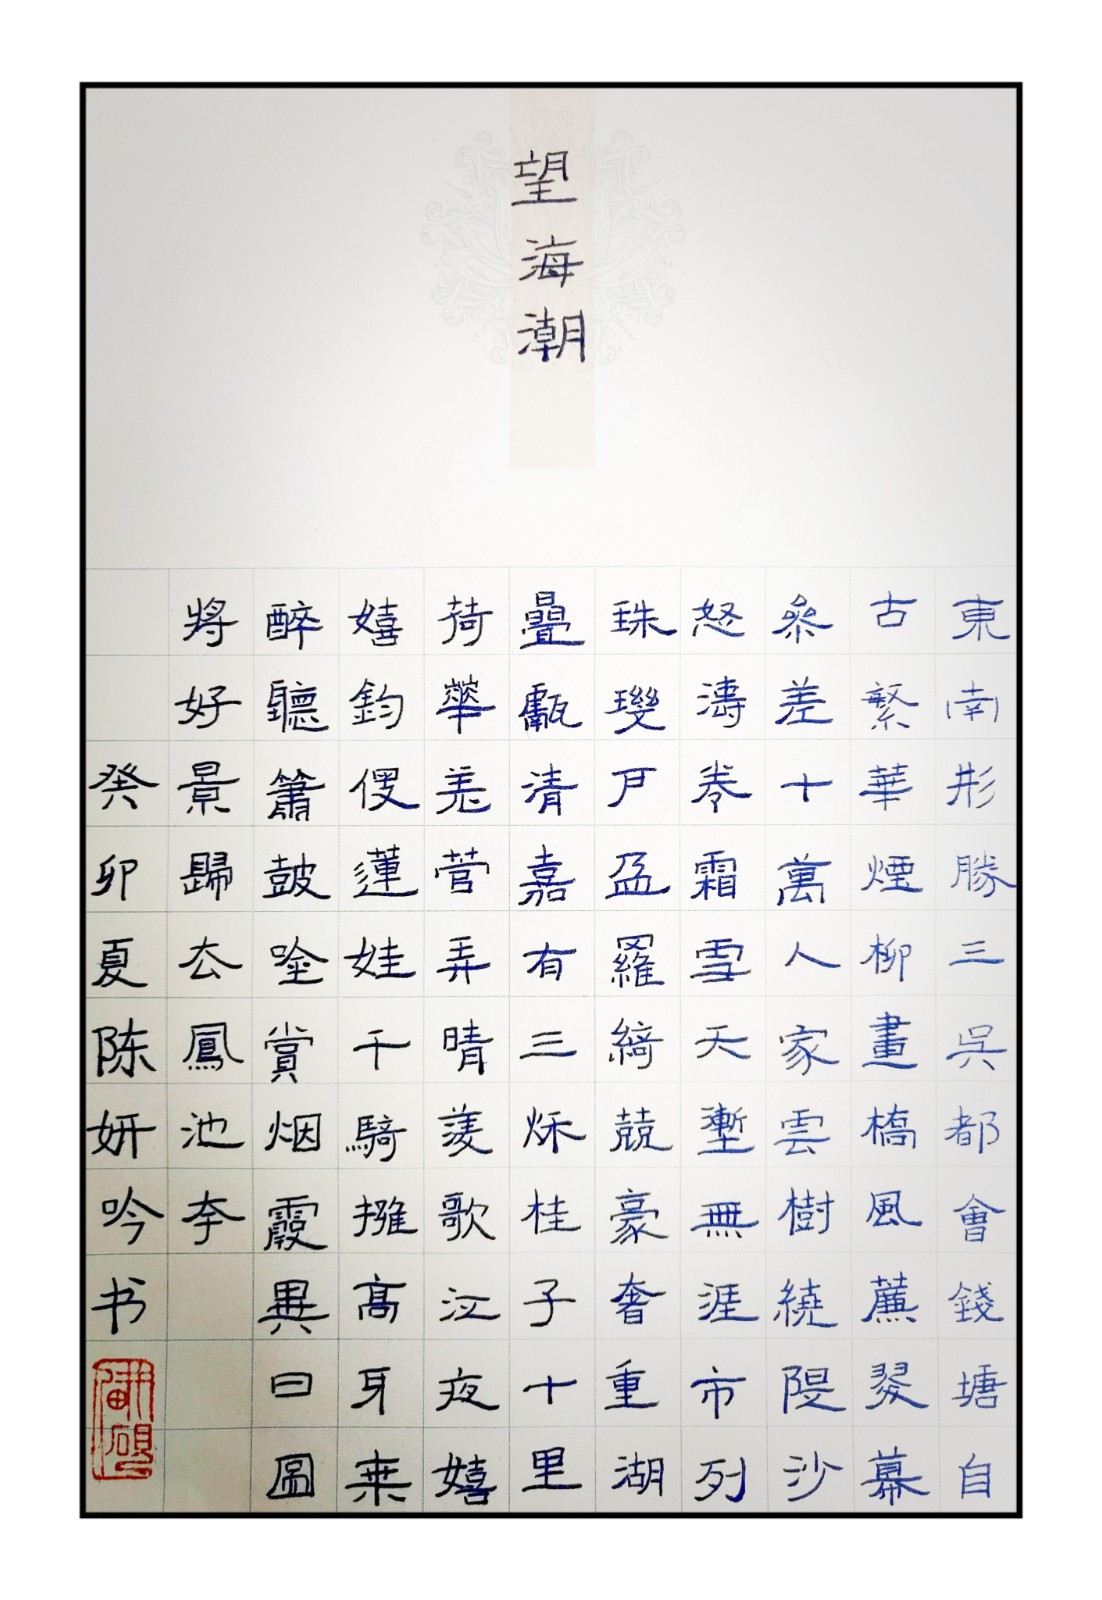 望海潮
東南形勝三吳都會錢塘自
古繁華煙柳畫橋風簾翠幕
參差十萬人家雲樹繞隄沙
怒濤卷霜雪天塹無涯市列
珠璣戶盈羅綺競豪奢重湖
疊巘清嘉有三秋桂子十里
荷華羌菅弄晴菱歌泛夜嬉
嬉釣傁蓮娃千騎擁高牙乘
醉聽簫鼓唫賞烟霞異日圖
將好景歸去鳳池夸
癸卯夏陈妍吟书